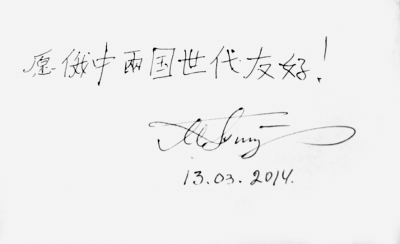 愿俄中兩国世代友好!
13.03.2014.